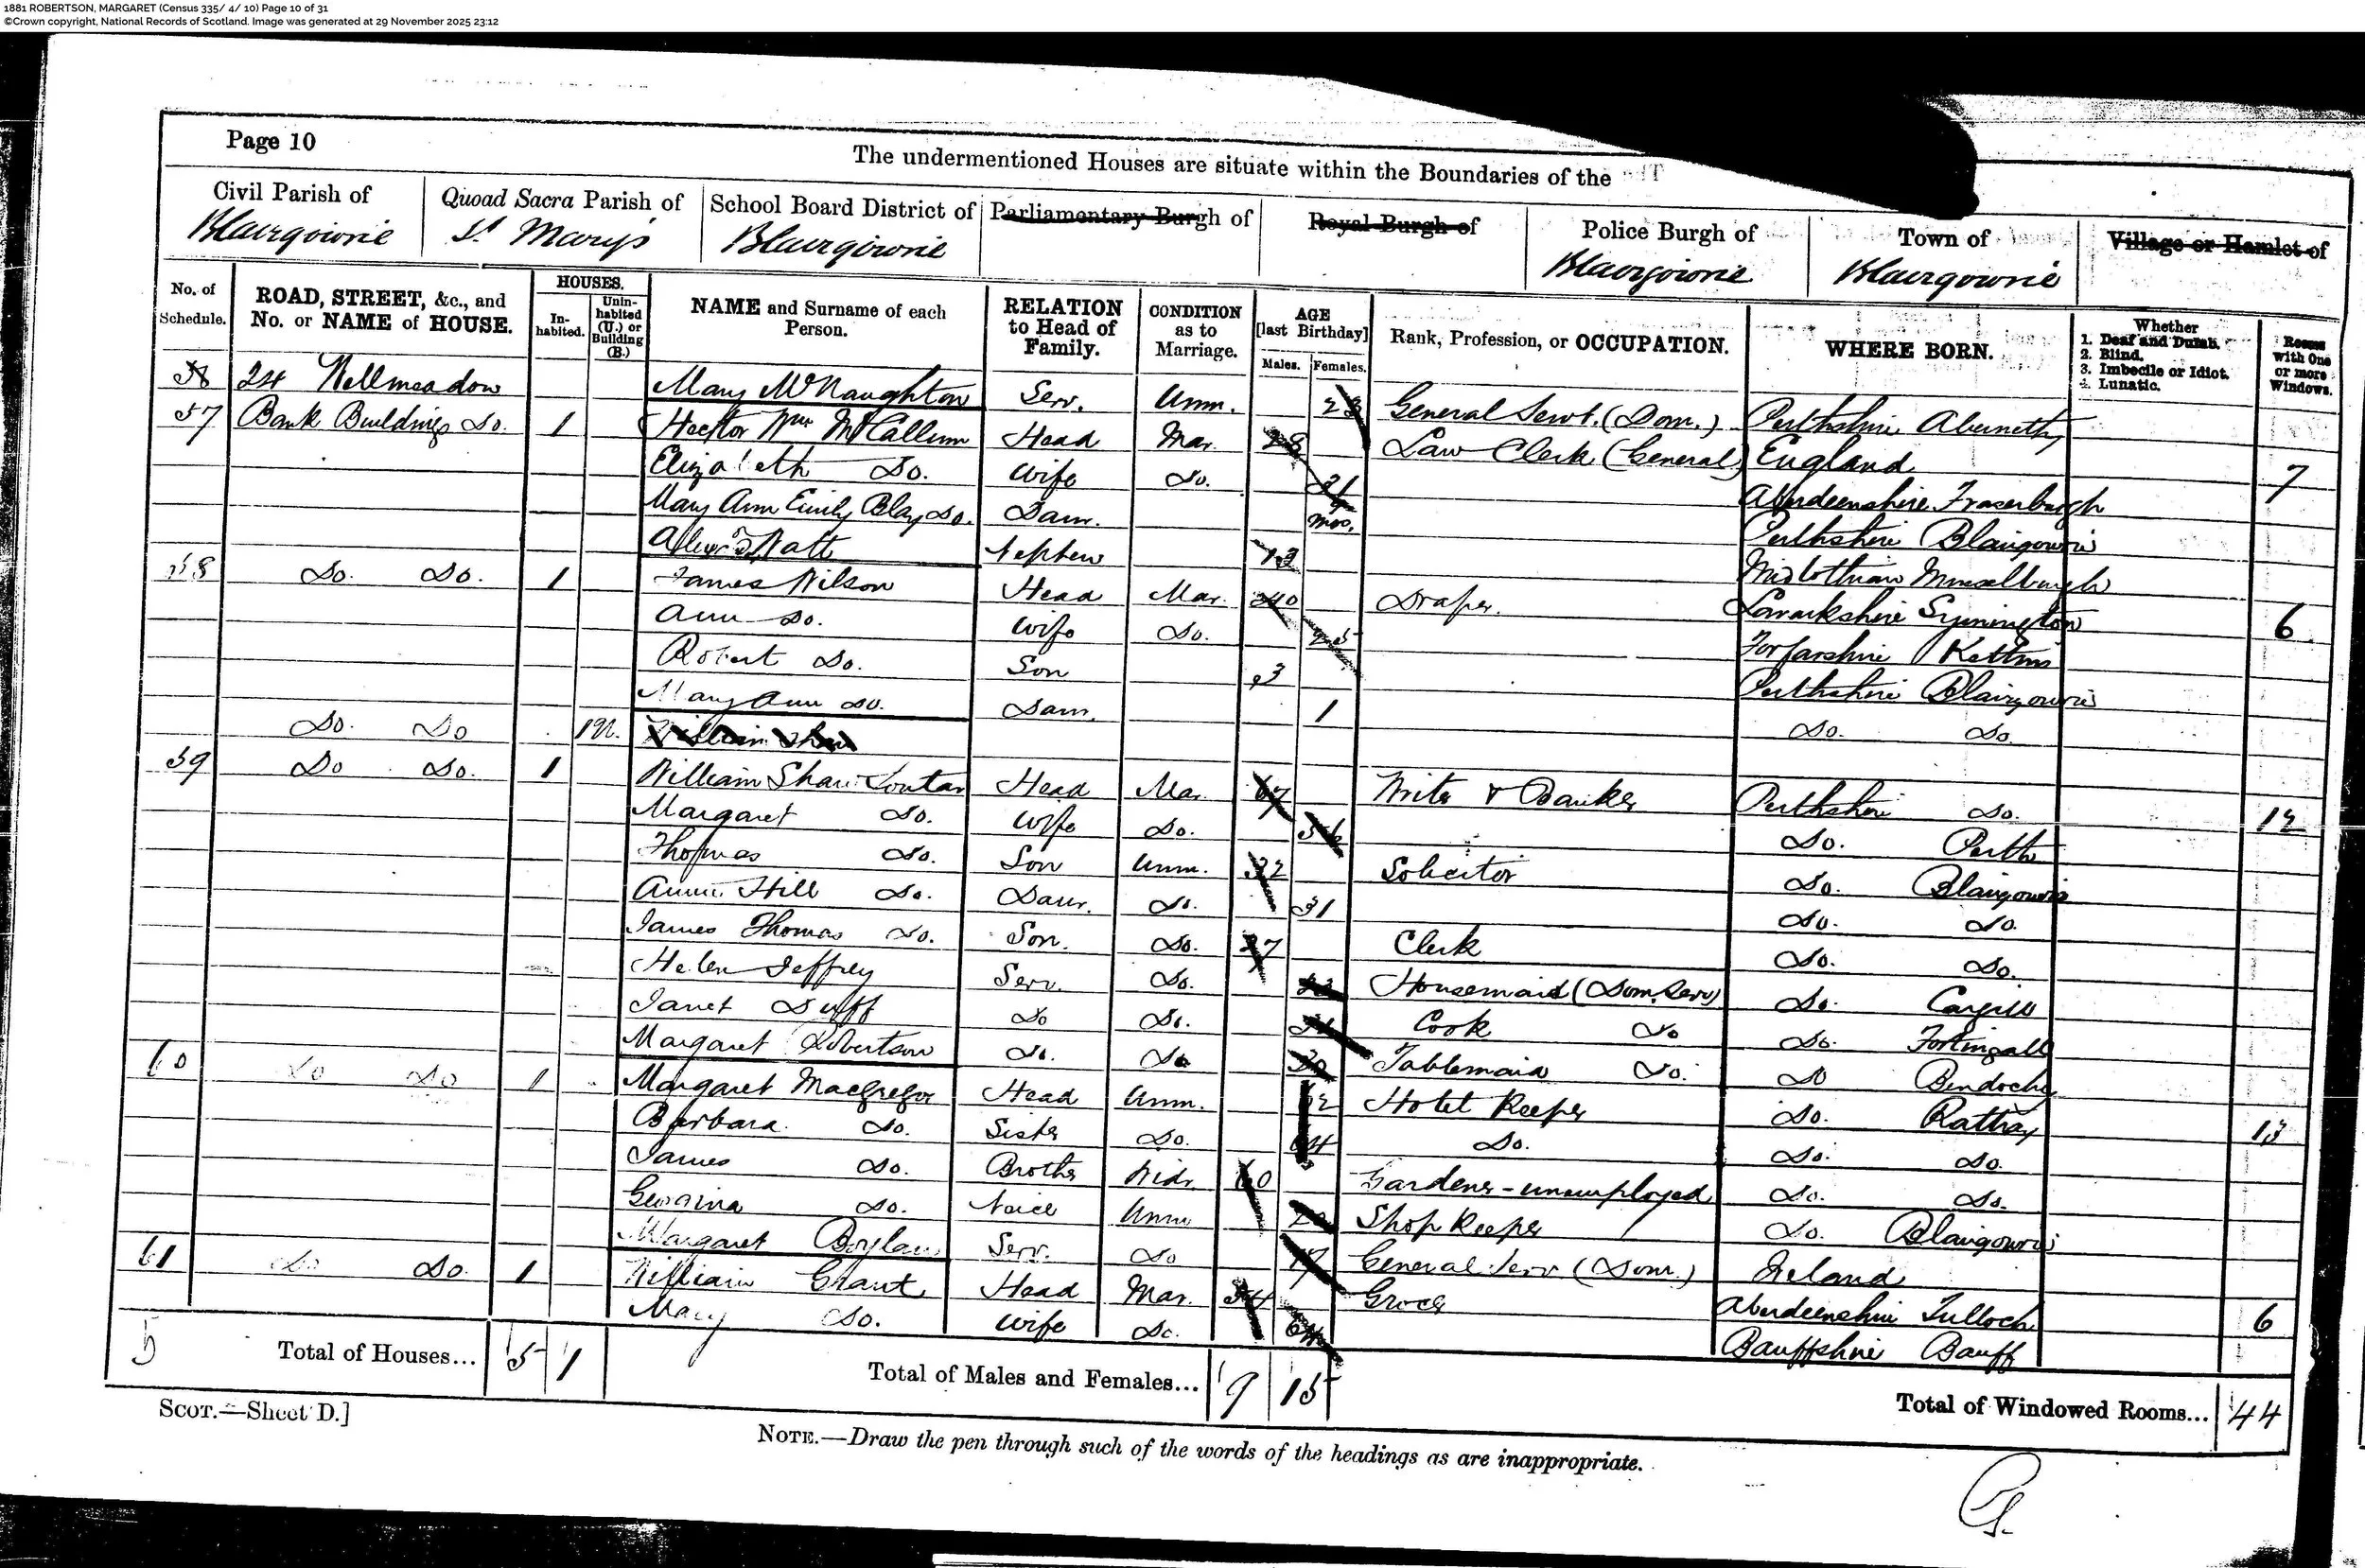 1881 ROBERTSON, MARGARET (Census 335/ 4/ 10) Page 10 of 31
©Crown copyright, National Records of Scotland. Image was generated at 29 November 2025 23:12
Page 10
The undermentioned Houses are situate within the Boundaries of the
Civil Parish of Quoad Sacra Parish of School Board District of Parliamentary Burgh of Royal Burgh of Police Burgh of Town of Village or Hamlet of
Blairgowrie St Mary's Blairgowrie Blairgowrie Blairgowrie
No. of Schedule. ROAD, STREET, &c., and No. or NAME of HOUSE. HOUSES. Inhabited. Uninhabited (U.) or Building (B.) NAME and Surname of each Person. RELATION to Head of Family. CONDITION as to Marriage. AGE [last Birthday] Males. Females. Rank, Profession, or OCCUPATION. WHERE BORN. Whether 1. Deaf and Dumb. 2. Blind. 3. Imbecile or Idiot. 4. Lunatic. Rooms with One or more Windows.
24 Wellmeadow Mary McNaughton Serv. Unm. 23 General Servt. (Dom.) Perthshire Abernethy
57 Bank Buildings Do. 1 Hector Wm McCallum Head Mar. 28 Law Clerk (General) England 7
Elizabeth Do. Wife Do. 21 Aberdeenshire Fraserburgh
Mary Ann Emily Do. Daur. mos. Perthshire Blairgowrie
Watt Nephew 13 Midlothian Musselburgh
58 Do. Do. 1 James Wilson Head Mar. 40 Draper. Lanarkshire Symington 6
Ann Do. Wife Do. Forfarshire Kettins
Robert Do. Son 3 Perthshire Blairgowrie
Mary Ann Do. Daur. 1 Do. Do.
Do. Do 1U.
59 Do Do. 1 William Shaw Soutar Head Mar. 67 Writer & Banker Perthshire Do. 12
Margaret Do. Wife Do. 56 Do. Perth
Thomas Do. Son Unm. 32 Solicitor Do. Blairgowrie
Annie Hill Do. Daur. Do. 31 Do. Do.
James Thomas Do. Son. Do. 27 Clerk Do. Do.
Helen Jeffrey Serv. Do. Housemaid (Dom. Serv) Do. Cargill
Janet Duff Do Do. Cook Do Do. Fortingall
Margaret Robertson Do. Do 20 Tablemaid Do. Do Bendochy
60 Do Do 1 Margaret Macgregor Head Unm. 62 Hotel Keeper Do. Rattray 13
Barbara Do. Sister Do. 64 Do. Do. Do.
James Do. Brother Widr. 60 Gardener - unemployed Do. Do.
Georgina Do. Neice Unm Shop Keeper Do. Blairgowrie
Margaret Boylan Serv. Do 17 General Serv (Dom.) Ireland
61 Do Do. 1 William Grant Head Mar. 54 Grocer Aberdeenshire Tulloch 6
Mary Do. Wife Do. 64 Banffshire Banff
5 Total of Houses... 5 1 Total of Males and Females... 9 15 Total of Windowed Rooms... 44
SCOT.—Sheet D.]
NOTE.—Draw the pen through such of the words of the headings as are inappropriate.